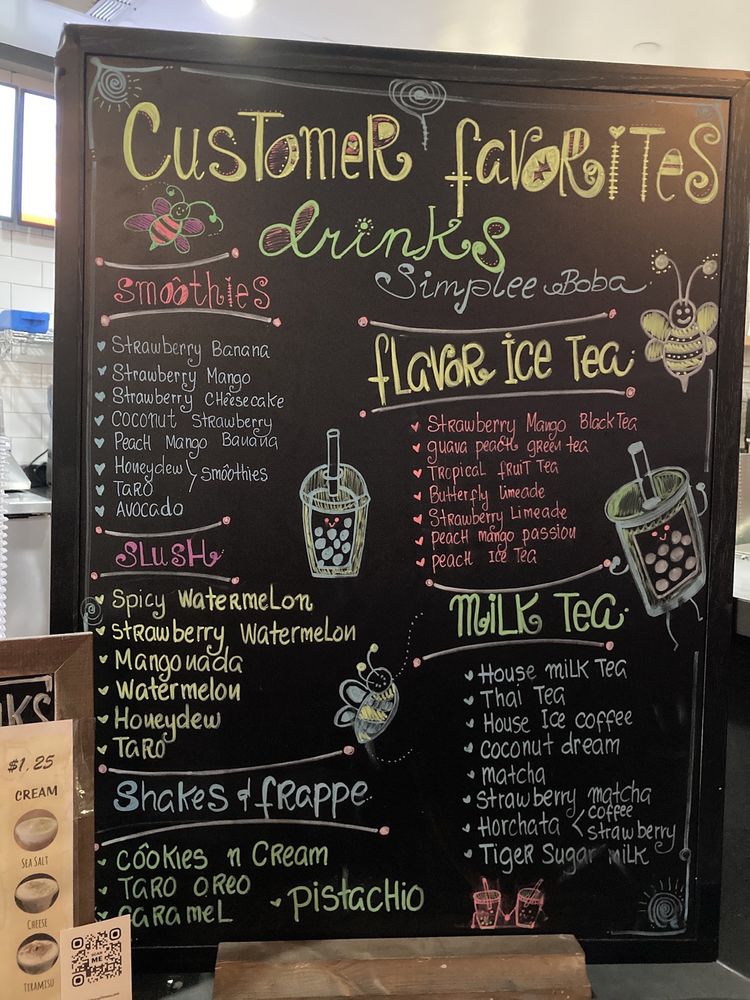 Customer favorites
drinks
Simplee Boba
Smoothies
Strawberry Banana
Strawberry Mango
Strawberry Cheesecake
Coconut Strawberry
Peach Mango Banana
Honeydew
Taro
Smoothies
Avocado
Slush
Spicy Watermelon
Strawberry Watermelon
Mangonada
Watermelon
Honeydew
Taro
Shakes & frappe
Cookies n Cream
Taro Oreo
Caramel
Pistachio
flavor ice Tea
Strawberry Mango Black Tea
guava peach green tea
Tropical fruit Tea
Butterfly limeade
Strawberry Limeade
peach mango passion
peach Ice Tea
Milk Tea
House milk Tea
Thai Tea
House Ice coffee
coconut dream
matcha
Strawberry matcha
Horchata
coffee
strawberry
Tiger Sugar milk
$1.25
CREAM
SEA SALT
CHEESE
TIRAMISU